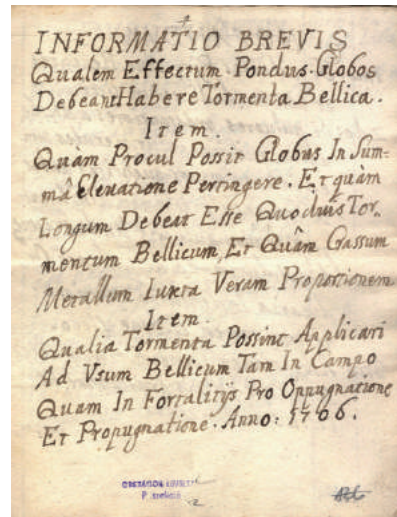 INFORMATIO BREVIS
Qualem Effectum Pondus Globos
Debeant Habere Tormenta Bellica.
Item.
Quàm Procul Possit Globus In Sum-
mâ Elevatione Pertingere. Et quàm
Longum Debeat Esse Quoduis Tor-
mentum Bellicum, Et Quàm Crassum
Metallum Iuxta Veram Proportionem
Item.
Qualia Tormenta Possint Applicari
Ad Vsum Bellicum Tam In Campo
Quam In Fortalitijs Pro Oppugnatione
Et Propugnatione. Anno: 1706.